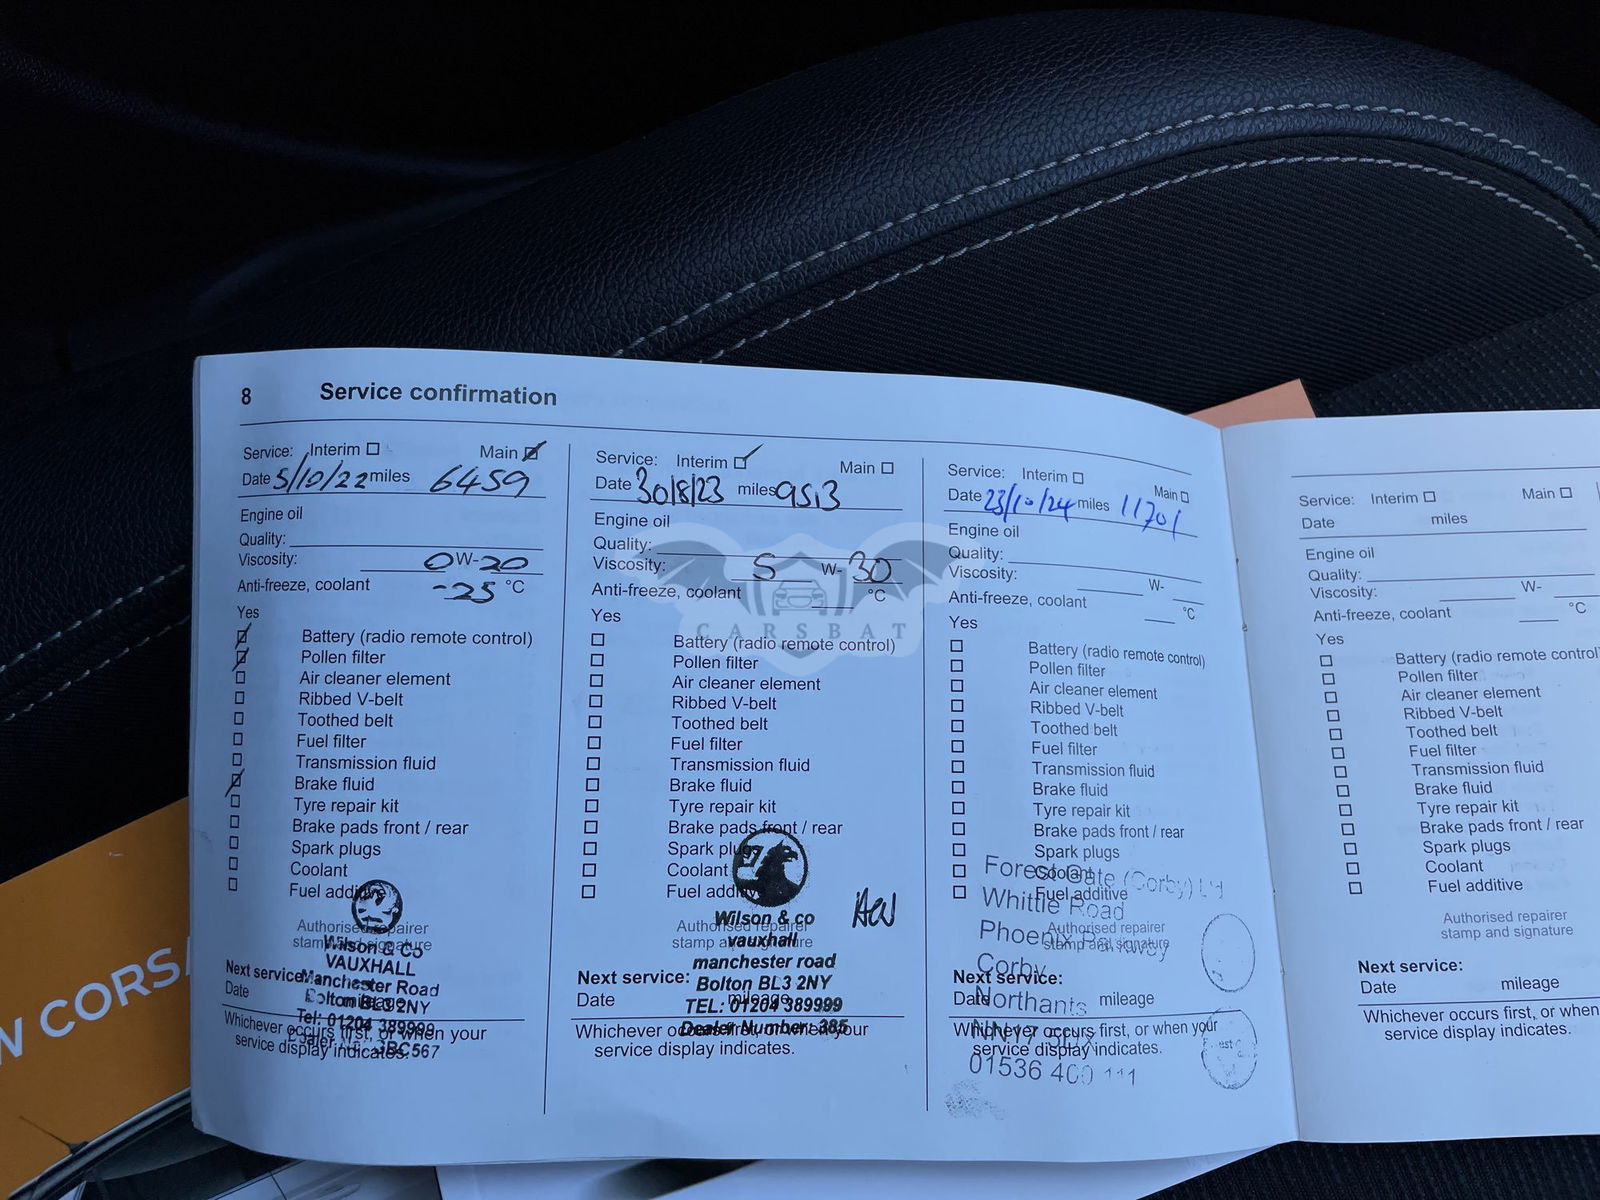 8 Service confirmation
Service: Interim Main
Date 5/10/22 miles 6459
Engine oil
Quality:
Viscosity: 0 W- 20
Anti-freeze, coolant -25 °C
Yes
Battery (radio remote control)
Pollen filter
Air cleaner element
Ribbed V-belt
Toothed belt
Fuel filter
Transmission fluid
Brake fluid
Tyre repair kit
Brake pads front / rear
Spark plugs
Coolant
Fuel additive
Authorised repairer
stamp and signature
Wilson & Co
VAUXHALL
Manchester Road
Bolton BL3 2NY
Tel: 01204 389999
Next service:
Date mileage
Whichever occurs first, or when your
service display indicates.
Service: Interim Main
Date 30/8/23 miles 9513
Engine oil
Quality:
Viscosity: 5 W- 30
Anti-freeze, coolant °C
Yes
Battery (radio remote control)
Pollen filter
Air cleaner element
Ribbed V-belt
Toothed belt
Fuel filter
Transmission fluid
Brake fluid
Tyre repair kit
Brake pads front / rear
Spark plugs
Coolant
Fuel additive
Authorised repairer
stamp and signature
Wilson & co
vauxhall
manchester road
Bolton BL3 2NY
TEL: 01204 389999
Dealer Number 385
Next service:
Date mileage
Whichever occurs first, or when your
service display indicates.
Service: Interim Main
Date 23/10/24 miles 11701
Engine oil
Quality:
Viscosity: W-
Anti-freeze, coolant °C
Yes
Battery (radio remote control)
Pollen filter
Air cleaner element
Ribbed V-belt
Toothed belt
Fuel filter
Transmission fluid
Brake fluid
Tyre repair kit
Brake pads front / rear
Spark plugs
Coolant
Fuel additive
Authorised repairer
stamp and signature
Forest Gate (Corby) Ltd
Whittle Road
Phoenix Parkway
Corby
Northants
NN17
01536 400 111
Next service:
Date mileage
Whichever occurs first, or when your
service display indicates.
Service: Interim Main
Date miles
Engine oil
Quality:
Viscosity: W-
Anti-freeze, coolant °C
Yes
Battery (radio remote control)
Pollen filter
Air cleaner element
Ribbed V-belt
Toothed belt
Fuel filter
Transmission fluid
Brake fluid
Tyre repair kit
Brake pads front / rear
Spark plugs
Coolant
Fuel additive
Authorised repairer
stamp and signature
Next service:
Date mileage
Whichever occurs first, or when
service display indicates.
CARSBAT